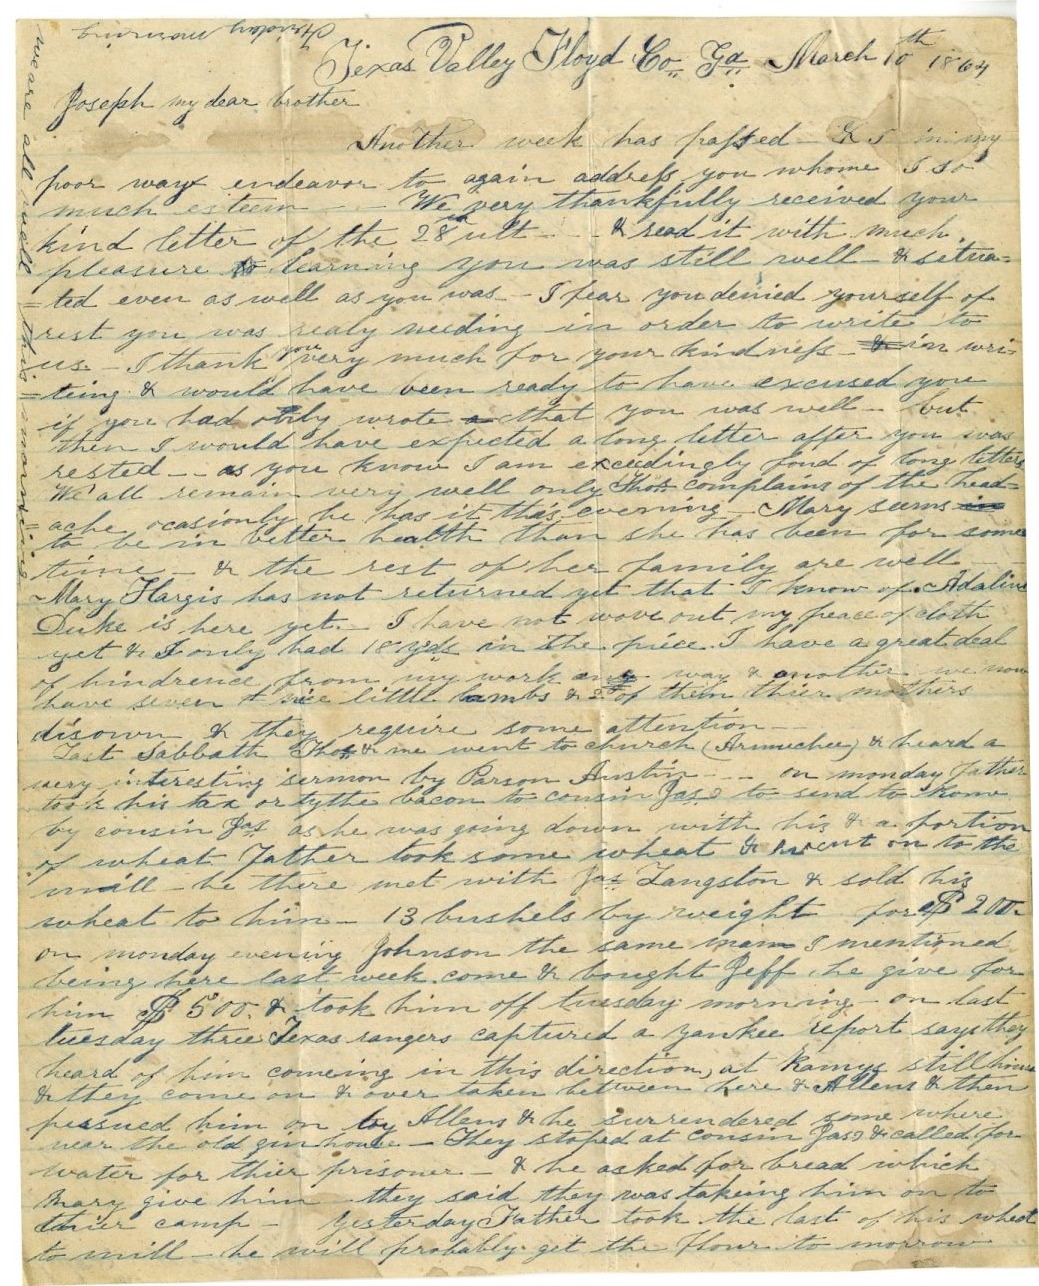 Friday morning
we are all well this morning
Texas Valley Floyd Co,, Ga,, March 10th 1864
Joseph my dear brother
Another week has passed — & I in my
poor way endeavor to again address you whome I so
much esteem — — We very thankfully received your
kind letter of the 28 ult — . & read it with much
pleasure learning you was still well — & situa=
=ted even as well as you was — I fear you denied yourself of
rest you was realy needing in order to write to
us. — I thank you very much for your kindness — & in wri=
ting & would have been ready to have excused you
if you had only wrote that you was well — but
then I would have expected a long letter after you was
rested — as you know I am exceedingly fond of long letters
We all remain very well only Thos complains of the head=
ache ocasionly he has it this evening — Mary seems in
to be in better health than she has been for some
time — & the rest of her family are well
Mary Hargis has not returned yet that I know of. Adaline
Duke is here yet. I have not wove out my peace of cloth
yet & I only had 18 yds in the piece. I have a great deal
of hindrence from my work any way & another we now
have seven nice little lambs & 2 of them thier mothers
disown & they require some attention —
Last Sabbath Thos & me went to church (Armuchee) & heard a
very interesting sermon by Parson Austin — — on monday Father
took his tax or tythe bacon to cousin Jas to send to Rome
by cousin Jas as he was going down with his & a portion
of wheat Father took some wheat & went on to the
mill — he there met with Jas Langston & sold his
wheat to him — 13 bushels by weight for $ 200.
on monday evening Johnson the same man I mentioned
being here last week come & bought Jeff he give for
him $ 500. & took him off tuesday morning — on last
tuesday three Texas rangers captured a yankee report says they
heard of him comeing in this direction, at Ramys still house
& they come on & over taken between here & Allens & then
pesued him on by Allens & he surrendered some where
near the old gin house — They stoped at cousin Jas & called for
water for thier prisoner — & he asked for bread which
Mary give him they said they was takeing him on to
thier camp — Yesterday Father took the last of his wheat
to mill — he will probably get the flour to morrow